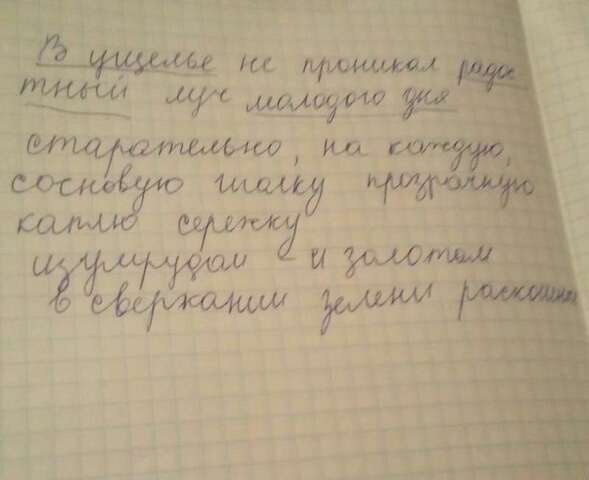 В ущелье не проникал радос
тный луч молодого дня
старательно, на каждую,
сосновую шапку прозрачную
каплю сережку
изумрудом и золотом
в сверкании зелени